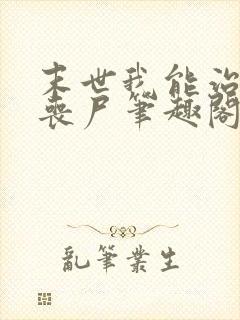 末世我能治
丧尸笔趣阁
乱笔丛生